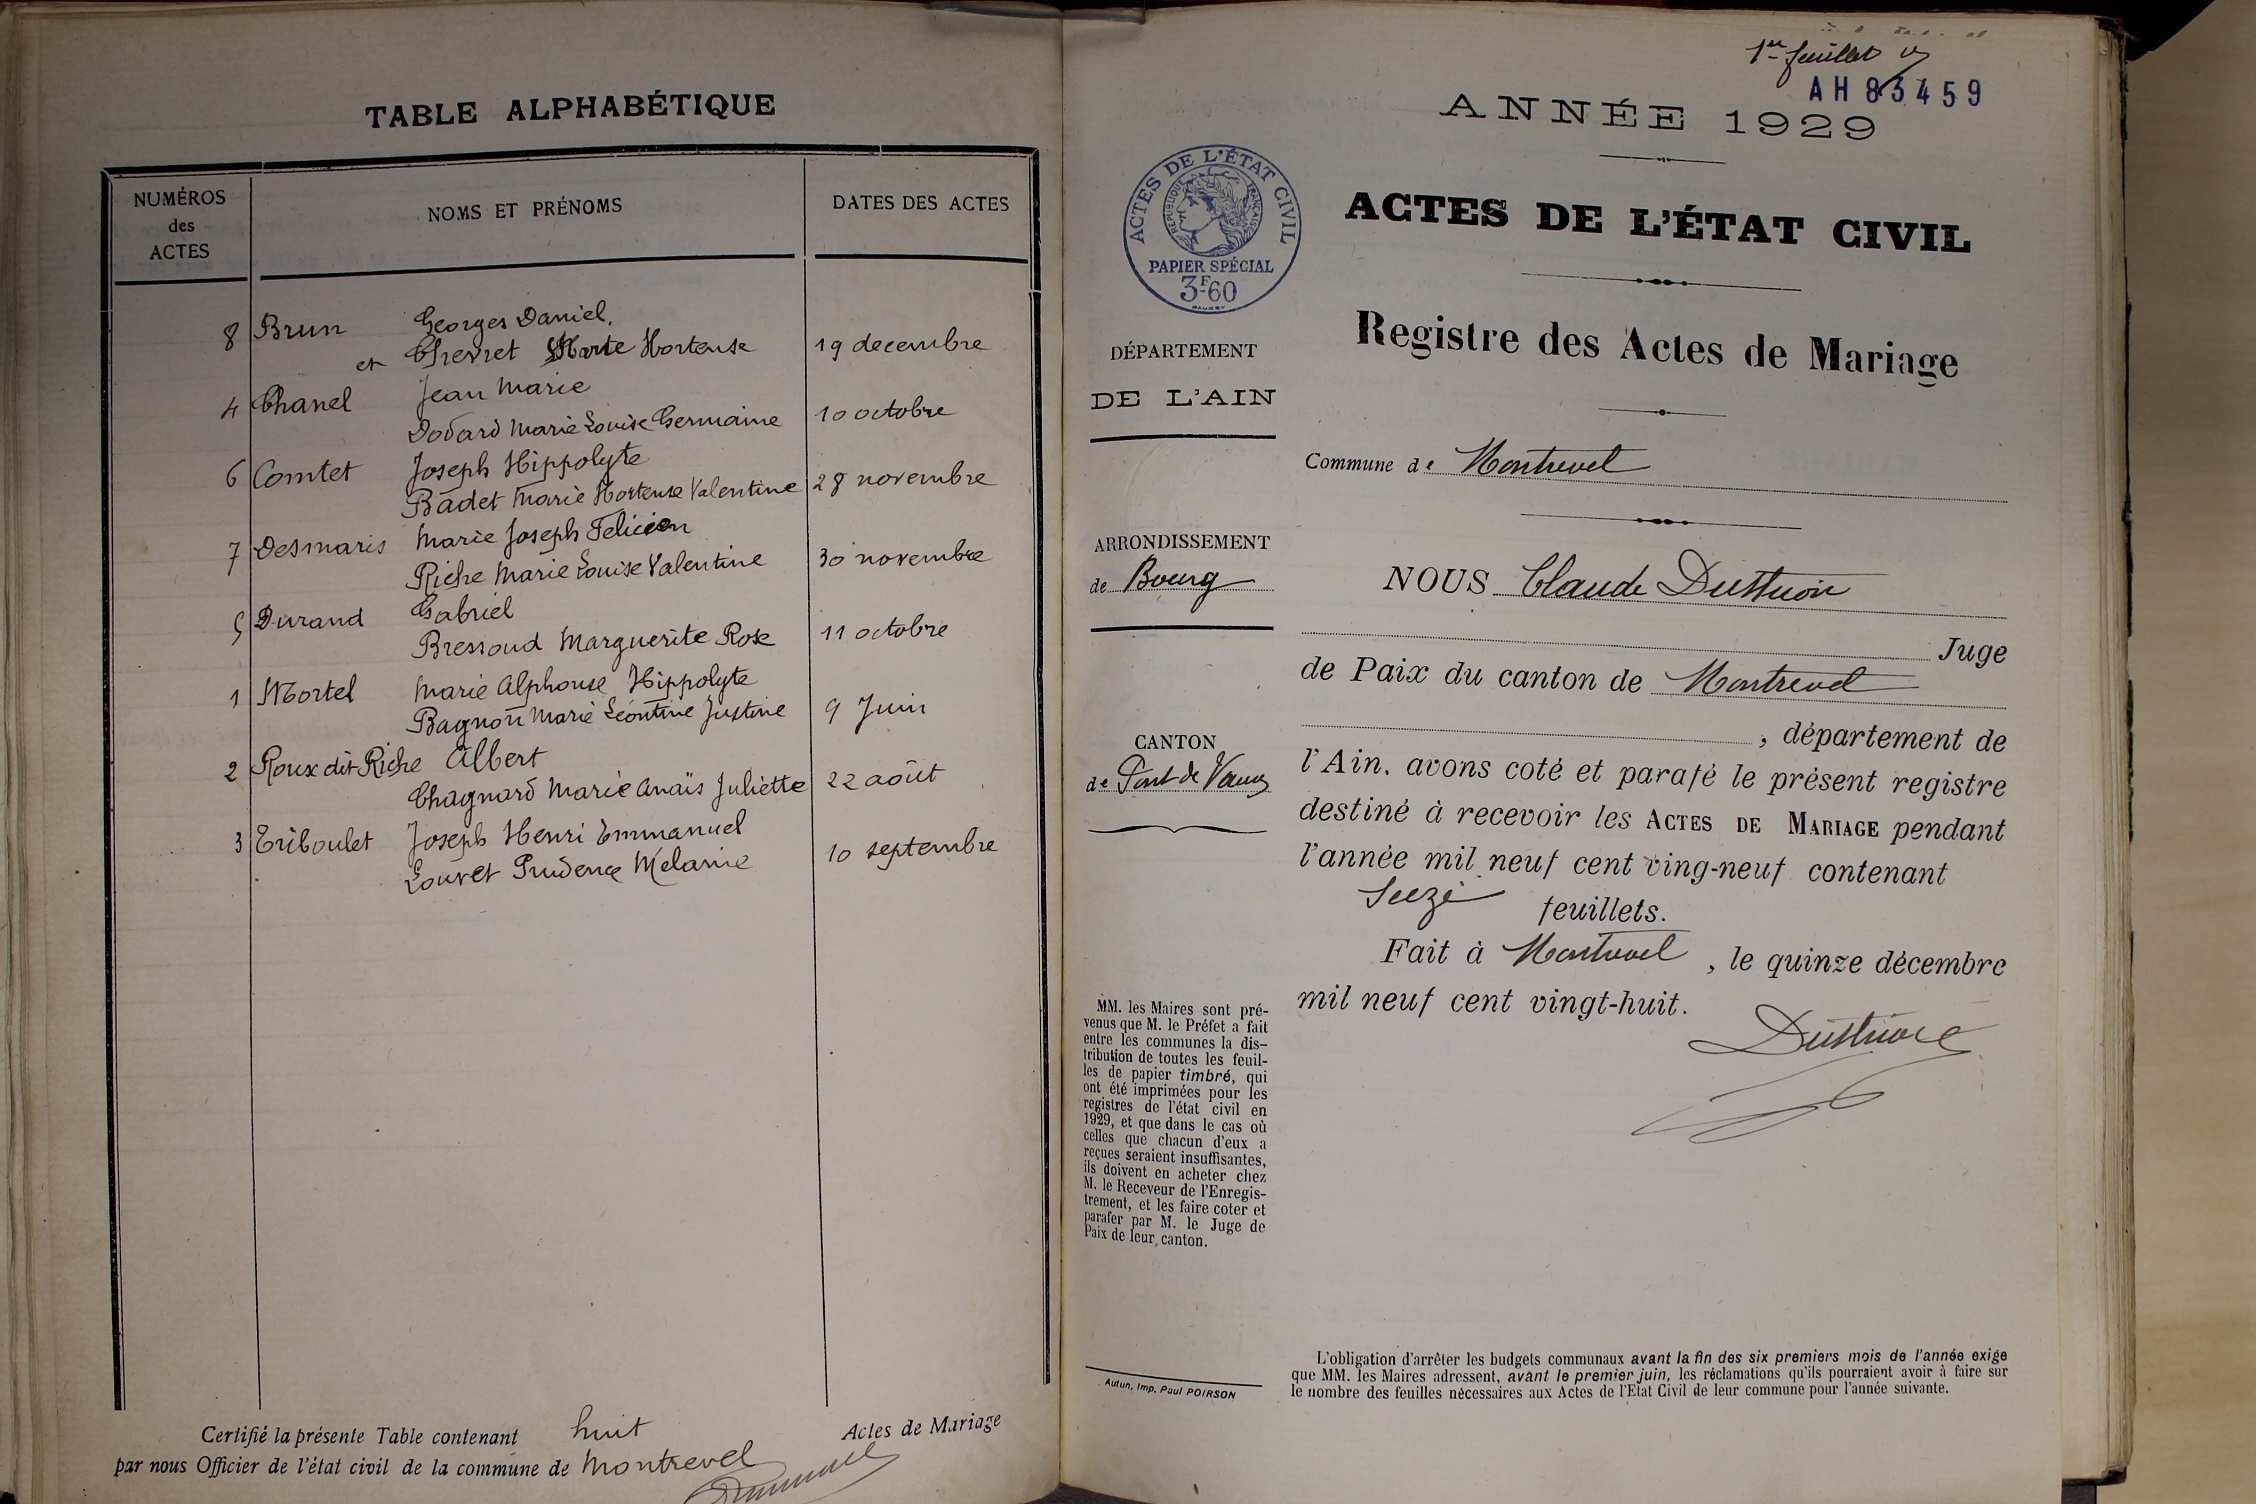 TABLE ALPHABÉTIQUE
NUMÉROS
des
ACTES
NOMS ET PRÉNOMS
DATES DES ACTES
8 Brun Georges Daniel,
et Chevret Marie Hortense 19 decembre
4 Chanel Jean Marie
Dodard Marie Louise Germaine 10 octobre
6 Comtet Joseph Hippolyte
Badet Marie Hortense Valentine 28 novembre
7 Desmaris Marie Joseph Felicien
Riche Marie Louise Valentine 30 novembre
5 Durand Gabriel
Bressoud Marguerite Rose 11 octobre
1 Mortel Marie Alphonse Hippolyte
Bagnon Marie Léontine Justine 9 Juin
2 Roux dit Riche Albert
Chagnard Marie Anaïs Juliette 22 août
3 Triboulet Joseph Henri Emmanuel
Louvet Prudence Melanie 10 septembre
Certifié la présente Table contenant huit Actes de Mariage
par nous Officier de l'état civil de la commune de Montrevel
1er feuillet
AH 83459
ANNÉE 1929
ACTES DE L'ÉTAT CIVIL
RÉPUBLIQUE FRANÇAISE
PAPIER SPÉCIAL
3F60
ACTES DE L'ÉTAT CIVIL
Registre des Actes de Mariage
DÉPARTEMENT
DE L'AIN
Commune de Montrevel
ARRONDISSEMENT
de Bourg
NOUS Claude
Juge
de Paix du canton de Montrevel
, département de
CANTON
de Pont de Vaux
l'Ain, avons coté et parafé le présent registre
destiné à recevoir les ACTES DE MARIAGE pendant
l'année mil neuf cent ving-neuf contenant
Seize feuillets.
Fait à Montrevel, le quinze décembre
mil neuf cent vingt-huit.
MM. les Maires sont pré-
venus que M. le Préfet a fait
entre les communes la dis-
tribution de toutes les feuil-
les de papier timbré, qui
ont été imprimées pour les
registres de l'état civil en
1929, et que dans le cas où
celles que chacun d'eux a
reçues seraient insuffisantes,
ils doivent en acheter chez
M. le Receveur de l'Enregis-
trement, et les faire coter et
parafer par M. le Juge de
Paix de leur canton.
Autun, Imp. Paul POIRSON
L'obligation d'arrêter les budgets communaux avant la fin des six premiers mois de l'année exige
que MM. les Maires adressent, avant le premier juin, les réclamations qu'ils pourraient avoir à faire sur
le nombre des feuilles nécessaires aux Actes de l'Etat Civil de leur commune pour l'année suivante.